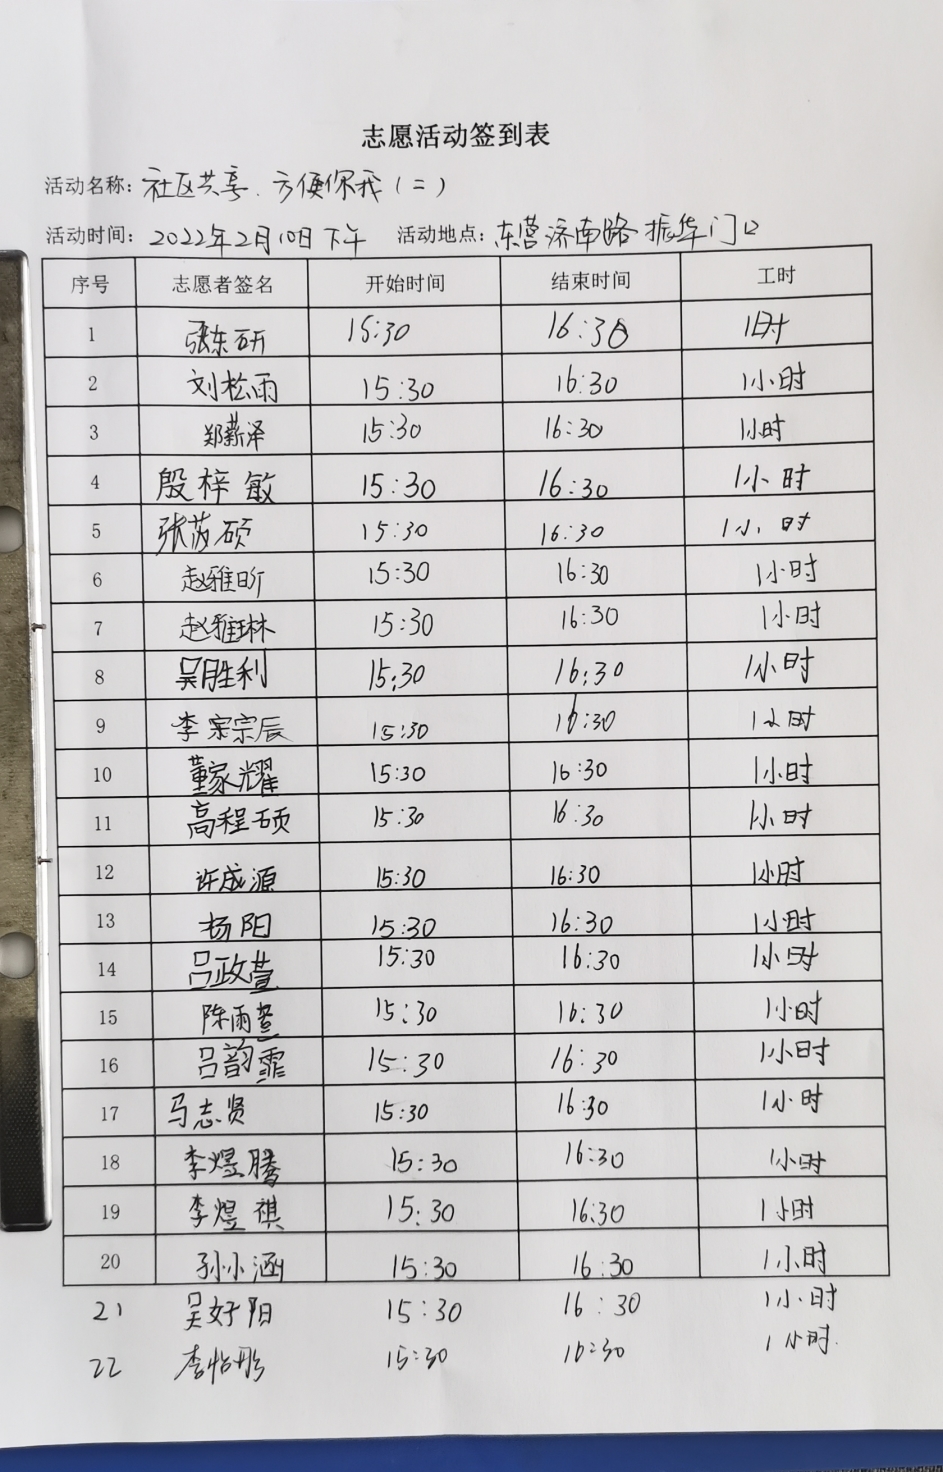 志愿活动签到表
活动名称：社区共享．方便你我（二）
活动时间：2022年2月10日下午 活动地点：东营济南路振华门口
序号 志愿者签名 开始时间 结束时间 工时
1 张东研 15:30 16:30 1时
2 刘松雨 15:30 16:30 1小时
3 郑薪泽 15:30 16:30 1小时
4 殷梓敏 15:30 16:30 1小时
5 张芮硕 15:30 16:30 1小时
6 赵雅昕 15:30 16:30 1小时
7 赵雅琳 15:30 16:30 1小时
8 吴胜利 15:30 16:30 1小时
9 李宗宸 15:30 16:30 1小时
10 董家耀 15:30 16:30 1小时
11 高程硕 15:30 16:30 1小时
12 许成源 15:30 16:30 1小时
13 杨阳 15:30 16:30 1小时
14 吕政萱 15:30 16:30 1小时
15 陈雨萱 15:30 16:30 1小时
16 吕韵霏 15:30 16:30 1小时
17 马志贤 15:30 16:30 1小时
18 李煜腾 15:30 16:30 1小时
19 李煜祺 15:30 16:30 1小时
20 孙小涵 15:30 16:30 1小时
21 吴好阳 15:30 16:30 1小时
22 李怡彤 15:30 16:30 1小时